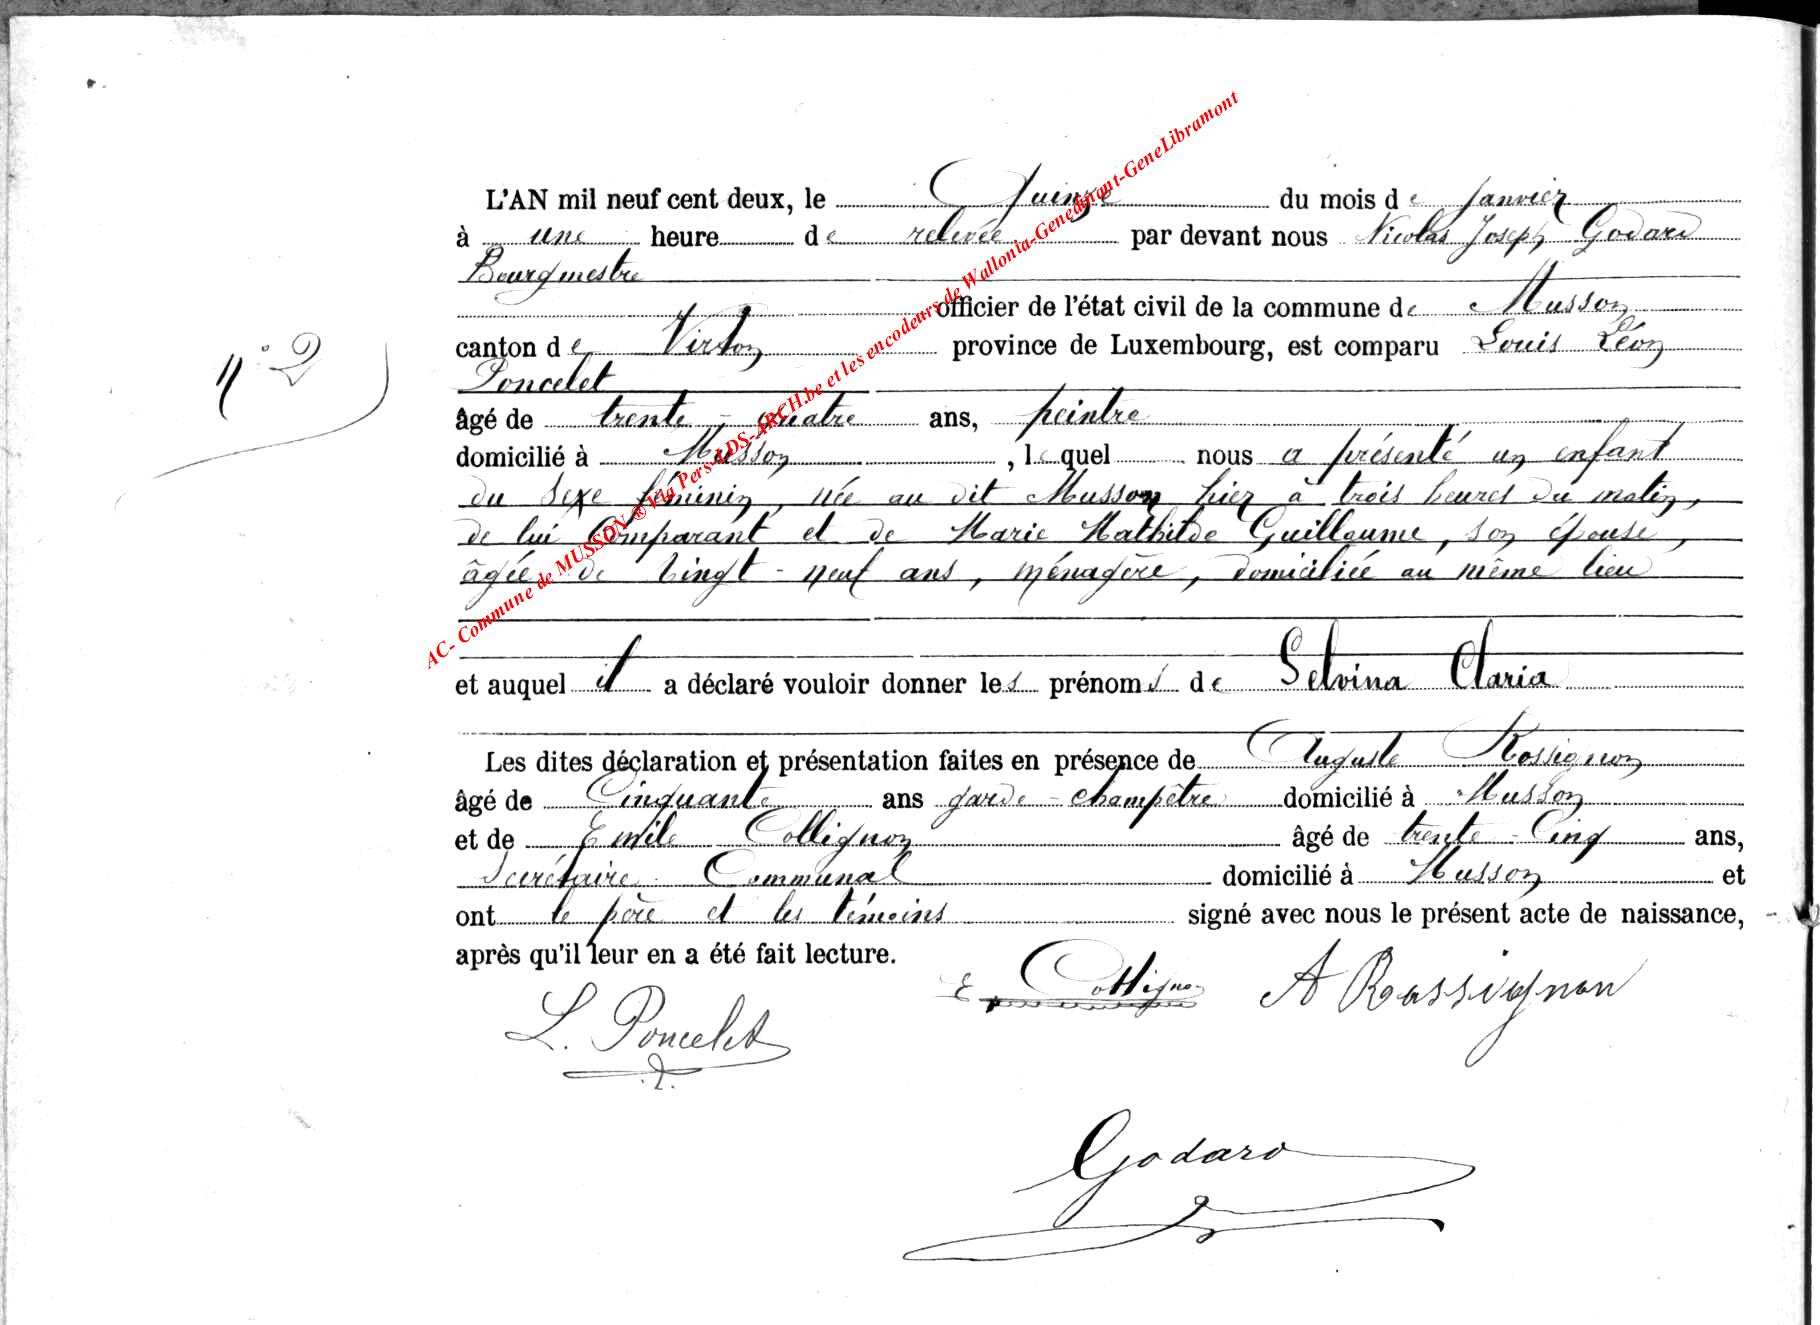 L'AN mil neuf cent deux, le Quinze du mois de Janvier
à une heure de relevée par devant nous Nicolas Joseph Godard
Bourgmestre
officier de l'état civil de la commune de Musson
canton de Virton province de Luxembourg, est comparu Louis Léon
Poncelet
n° 2
âgé de trente-quatre ans, peintre
domicilié à Musson, lequel nous a présenté un enfant
du sexe féminin, née au dit Musson hier à trois heures du matin,
de lui Comparant et de Marie Mathilde Guillaume, son épouse,
âgée de Vingt-neuf ans, ménagère, domiciliée au même lieu
et auquel il a déclaré vouloir donner les prénoms de Selvina Claria
Les dites déclaration et présentation faites en présence de Auguste Rossignon
âgé de Cinquante ans garde-champêtre domicilié à Musson
et de Emile Collignon âgé de trente-Cinq ans,
Secrétaire Communal domicilié à Musson et
ont le père et les témoins signé avec nous le présent acte de naissance,
après qu'il leur en a été fait lecture.
E Collignon A Rossignon
L. Poncelet
Godard
AC- Commune de MUSSON ® Via Pers-LDS-ARCH.be et les encodeurs de Wallonia-Genedinant-GeneLibramont